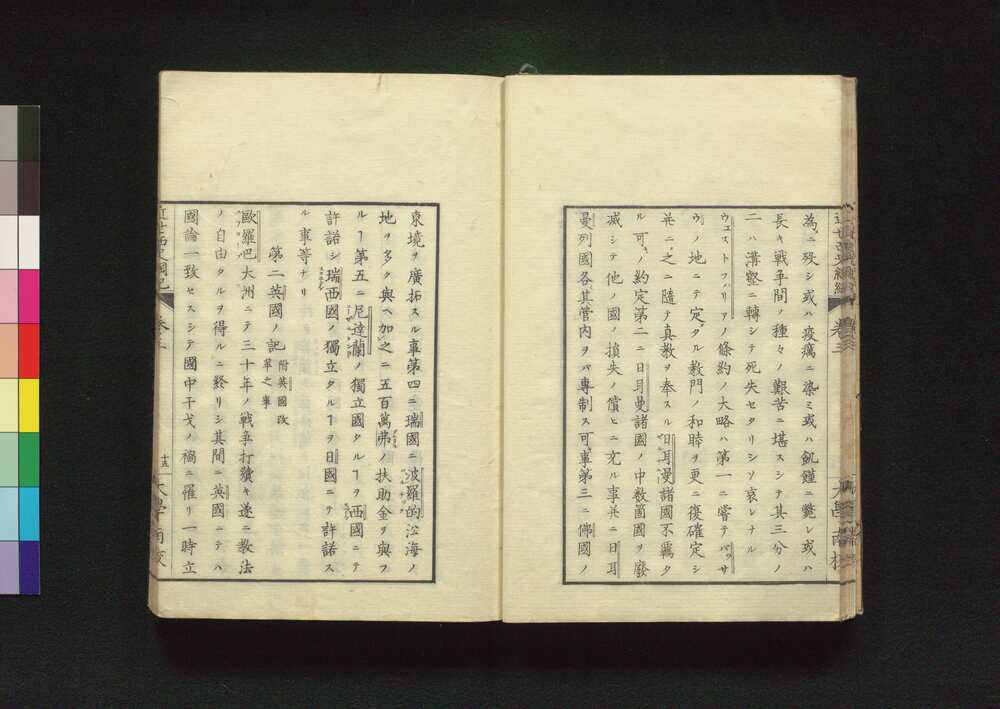 為ニ歿シ或ハ疫癘ニ染ミ或ハ飢饉ニ斃レ或ハ
長キ戦争間ノ種々ノ艱苦ニ堪スシテ其三分ノ
二ハ溝壑ニ轉シテ死失セタリシソ哀レナル
ウェストファリアノ條約ノ大略ハ第一ニ嘗テパッサ
ウノ地ニテ定タル教門ノ和睦ヲ更ニ復確定シ
并ニ之ニ隨テ真教ヲ奉スル日耳曼諸國不羈タ
ル可キノ約定第二ニ日耳曼諸國ノ中数箇國ヲ廢
滅シテ他ノ國ノ損失ノ償ヒニ充ル事并ニ日耳
曼列國各其管内ヲバ専制ス可キ事第三ニ佛國ノ
東境ヲ廣拓スル事第四ニ瑞國ニ波羅的沿海ノ
地ヲ多ク與ヘ加之ニ五百萬弗ノ扶助金ヲ與フ
ルヿ第五ニ尼達蘭ノ獨立國タルヿヲ西國ニテ
許諾シ瑞西國ノ獨立タルヿヲ日國ニテ許諾ス
ル事等ナリ
第二英國ノ記 附英國改革之事
歐羅巴大洲ニテ三十年ノ戦争打續キ遂ニ教法
ノ自由タルヲ得ルニ終リシ其間ニ英國ニテハ
國論一致セスシテ國中干戈ノ禍ニ罹リ一時立
卷三
十五
大學南校